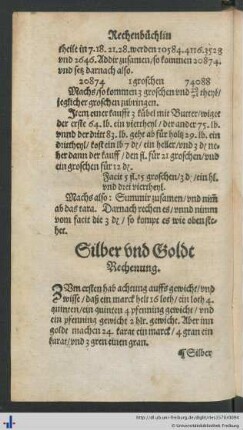 Rechenbüchlin
theile in 7.18.21.28. werden 10584.4116.3528
vnd 2646. Addir zusamen/ so kommen 20874.
vnd setz darnach also.
20874 1 groschen 74088
Machs/ so kommen 3 groschen vnd theyl/
jeglicher groschen zubringen.
Item einer kaufft 3 kübel mit Butter/ wiget
der erste 64. lb. ein viertheyl/ der ander 75. lb.
vnnd der dritt 83. lb. geht ab für holtz 29. lb. ein
drittheyl/ kost ein lb 7 ₰/ ein heller/ vnd 3 ₰ neher
dann der kauff/ den fl. für 21 groschen/ vnd
ein groschen für 12 ₰.
Facit 5 fl. 15 groschen/ 3 ₰/ ein hl.
vnd drei viertheyl.
Machs also: Summir zusamen/ vnd nim̃
ab das tara. Darnach rechen es/ vnnd nimm
vom facit die 3 ₰/ so kompt es wie oben stehet.
Silber vnd Goldt
Rechenung.
ZVm ersten hab achtung auffs gewicht/ vnd
wisse/ daß ein marck helt 16 loth/ ein loth 4.
quinten/ ein quinten 4 pfenning gewicht/ vnd
ein pfenning gewicht 2 hlr. gewicht. Aber inn
golde machen 24. karat ein marck/ 4 gran ein
karat/ vnd 3 gren einen gran.
¶ Silber
© Universitätsbibliothek Freiburg